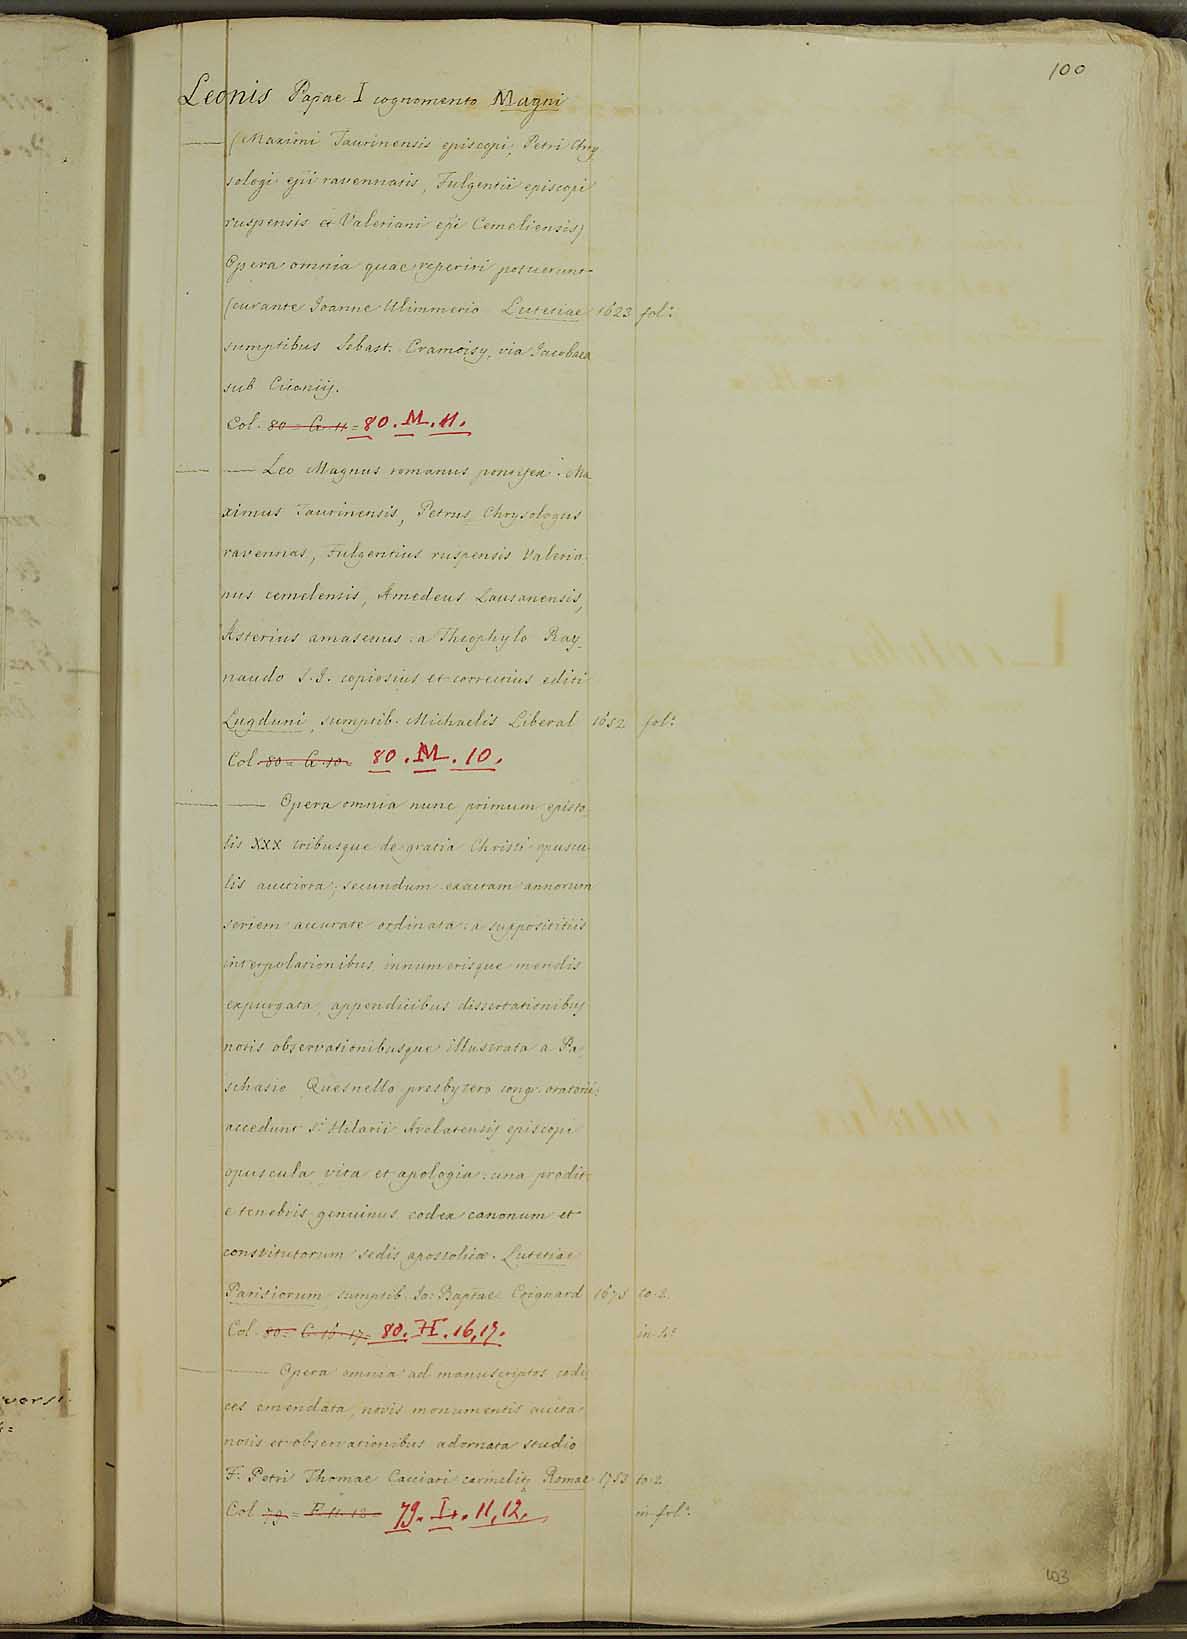 100
Leonis Papae I cognomento Magni
— (Maximi Taurinensis episcopi, Petri Chry
sologi epi ravennatis, Fulgentii episcopi
ruspensis et Valeriani epi Cemeliensis)
Opera omnia quae reperiri potuerunt
(curante Joanne Ulimmerio Lutetiae 1623 fol.°
sumptibus Sebast. Cramoisy, via Jacobaea
sub Ciconiis.
Col. 80 = G. 11 = 80. M. 11.
— — Leo Magnus romanus pontifex. Ma
ximus Taurinensis, Petrus Chrysologus
ravennas, Fulgentius ruspensis Valeria
nus cemelensis, Amedeus Lausanensis,
Asterius amasenus: a Theophylo Ray-
naudo S. J. copiosius et correctius editi
Lugduni, sumptib. Michaelis Liberal 1652 fol.°
Col. 80 = G. 10. 80. M. 10.
— — Opera omnia nunc primum episto
lis XXX tribusque de gratia Christi opuscu
lis auctiora; secundum exactam annorum
seriem accurate ordinata: a supposititiis
interpolationibus, innumerisque mendis
expurgata, appendicibus dissertationibus
notis observationibusque illustrata a Pa
schasio Quesnello presbytero cong. oratorii:
accedunt S. Hilarii Arelatensis episcopi
opuscula vita et apologia: una prodit
e tenebris genuinus codex canonum et
constitutorum sedis apostolicae. Lutetiae
Parisiorum sumptib. Jo: Baptae Coignard 1675 to. 2.
Col. 80 = C. 16. 17. 80. H. 16, 17. in 4.°
— — Opera omnia ad manuscriptos codi
ces emendata, novis monumentis aucta
notis et observationibus adornata studio
F. Petri Thomae Cacciari carmelitę Romae 1753 to. 2.
Col. 79 = F. 11. 12 79. I. 11, 12. in fol.°
103
versi